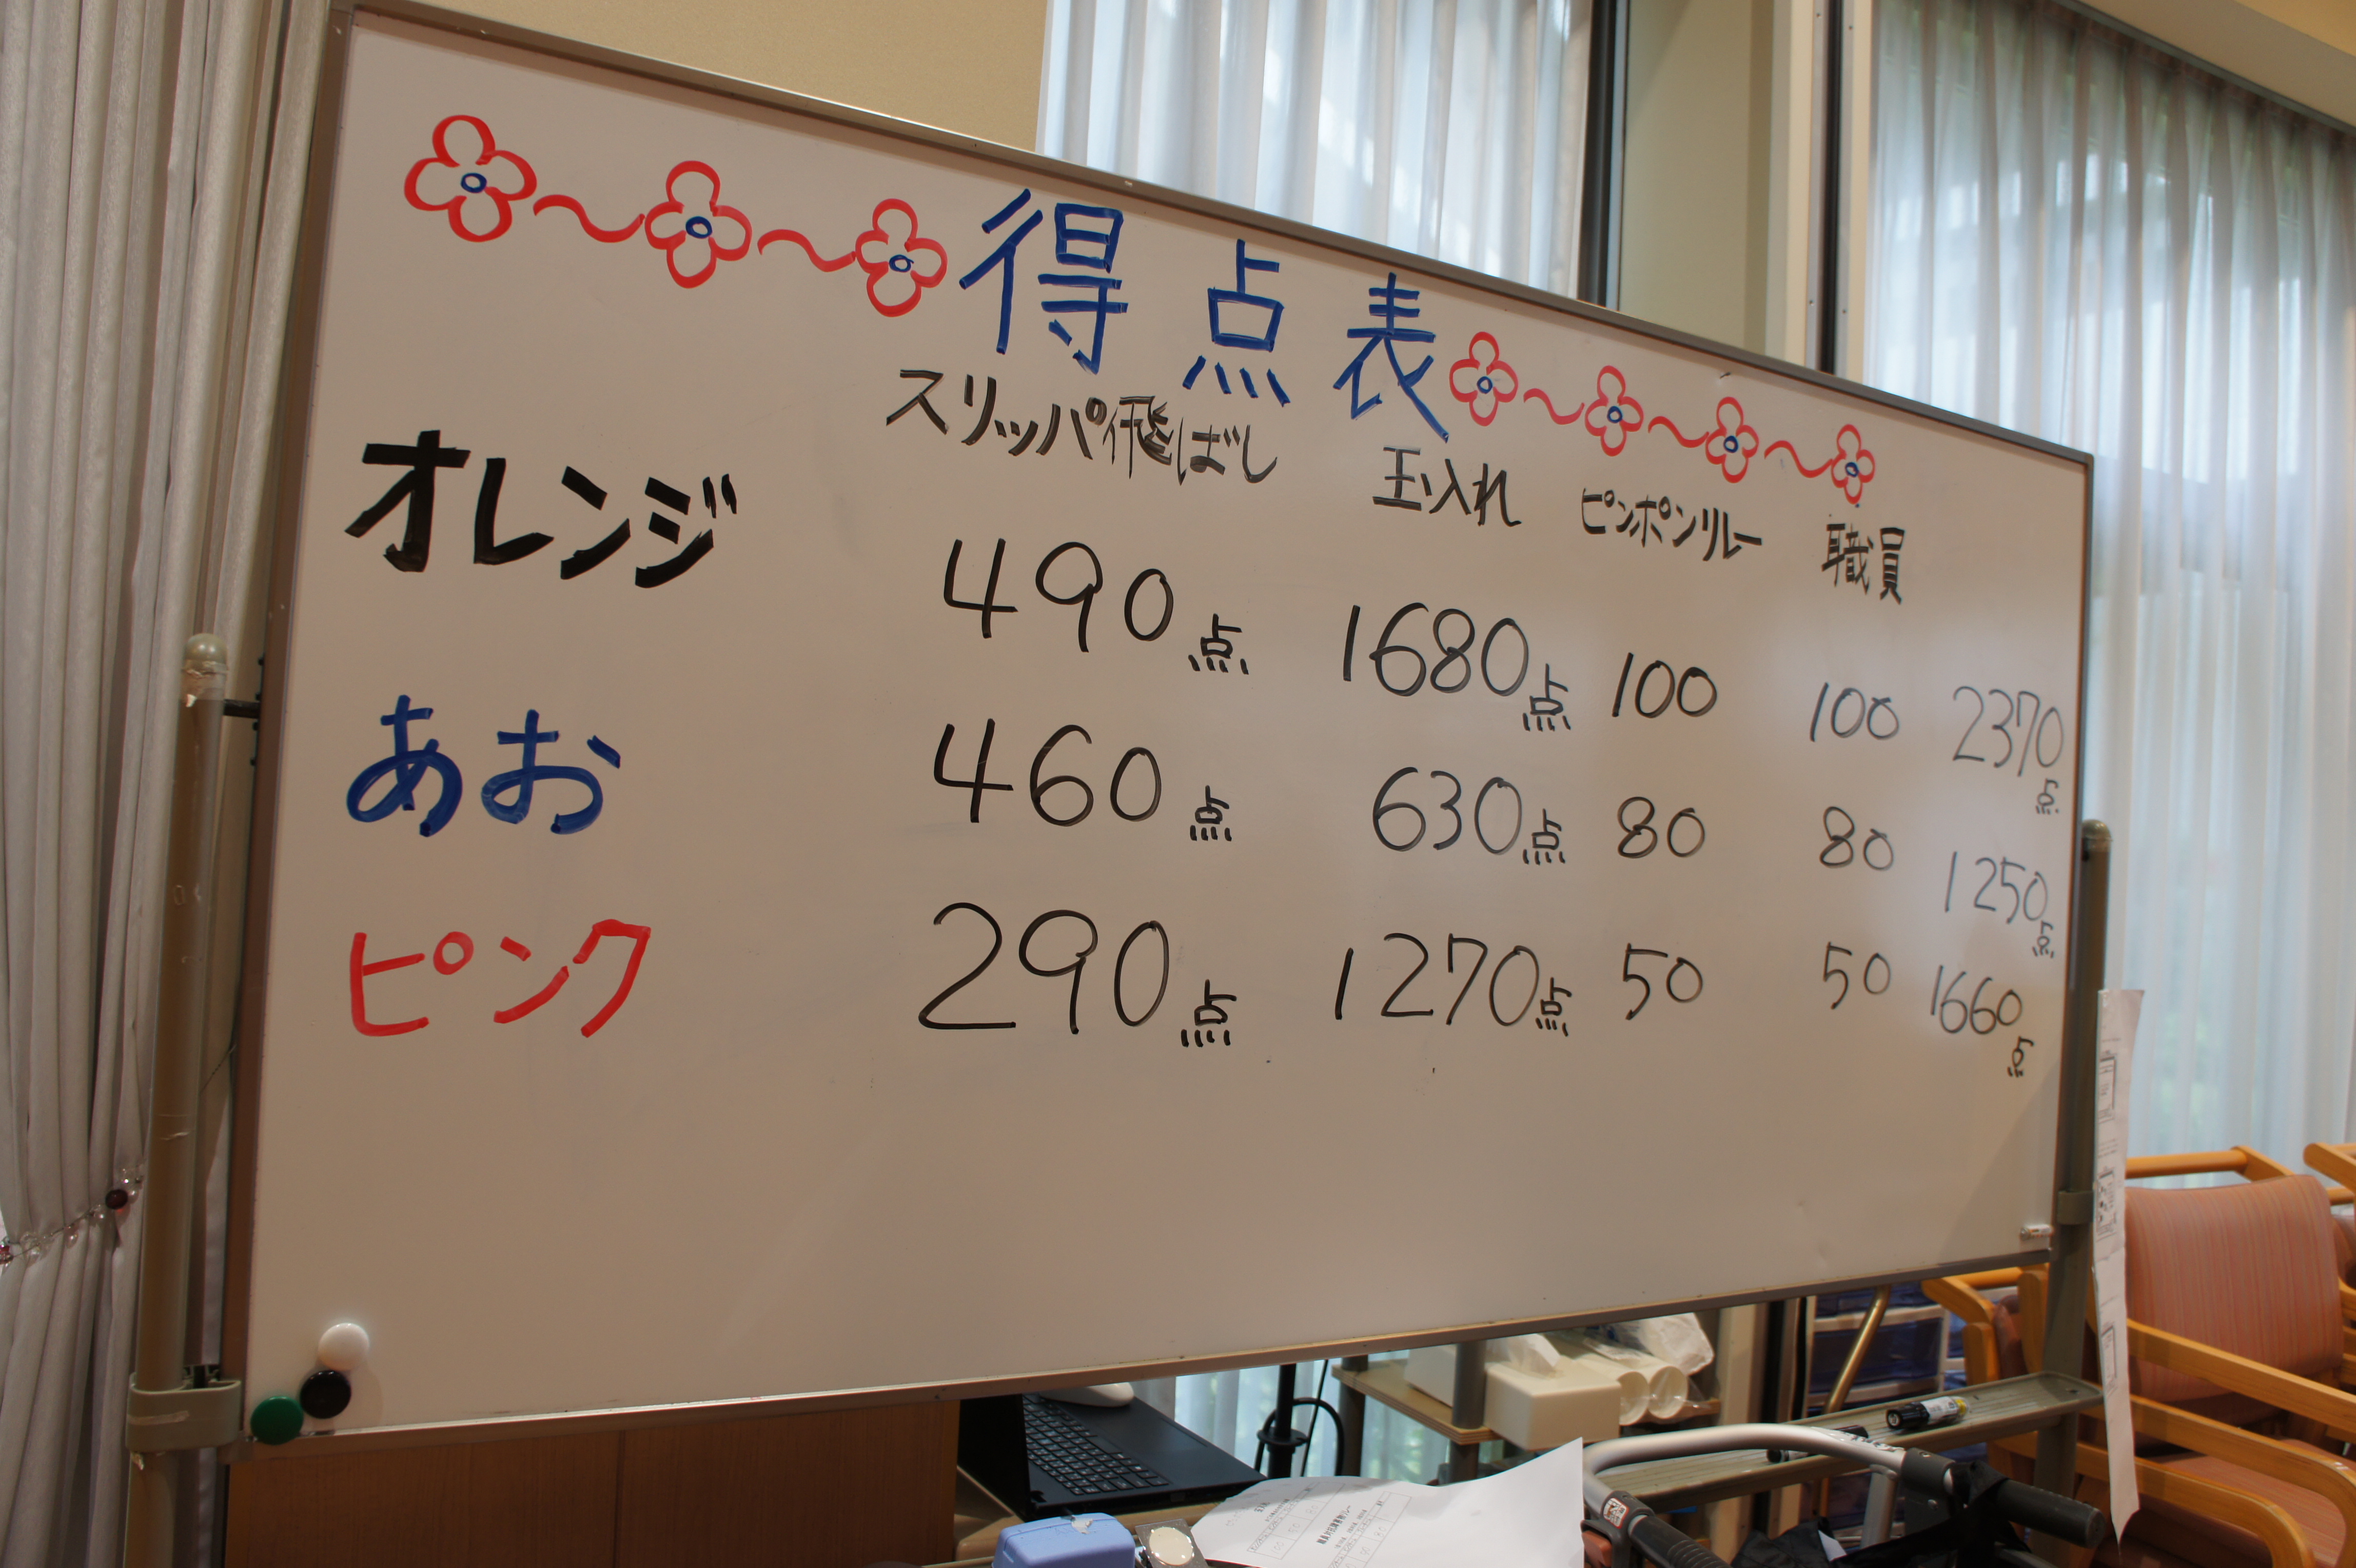 得点表
スリッパ飛ばし 玉入れ ピンポンリレー 職員
オレンジ 490点 1680点 100 100 2370点
あお 460点 630点 80 80 1250点
ピンク 290点 1270点 50 50 1660点